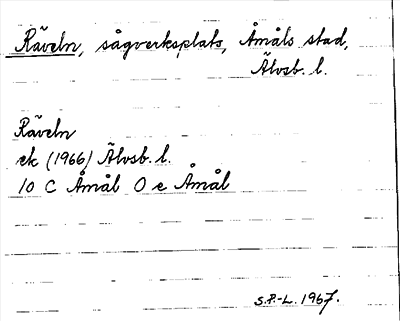 Räveln, sågverksplats, Åmåls stad,
Älvsb. l.
Räveln
ek (1966) Älvsb. l.
10 C Åmål O e Åmål
S.P-L. 1967.